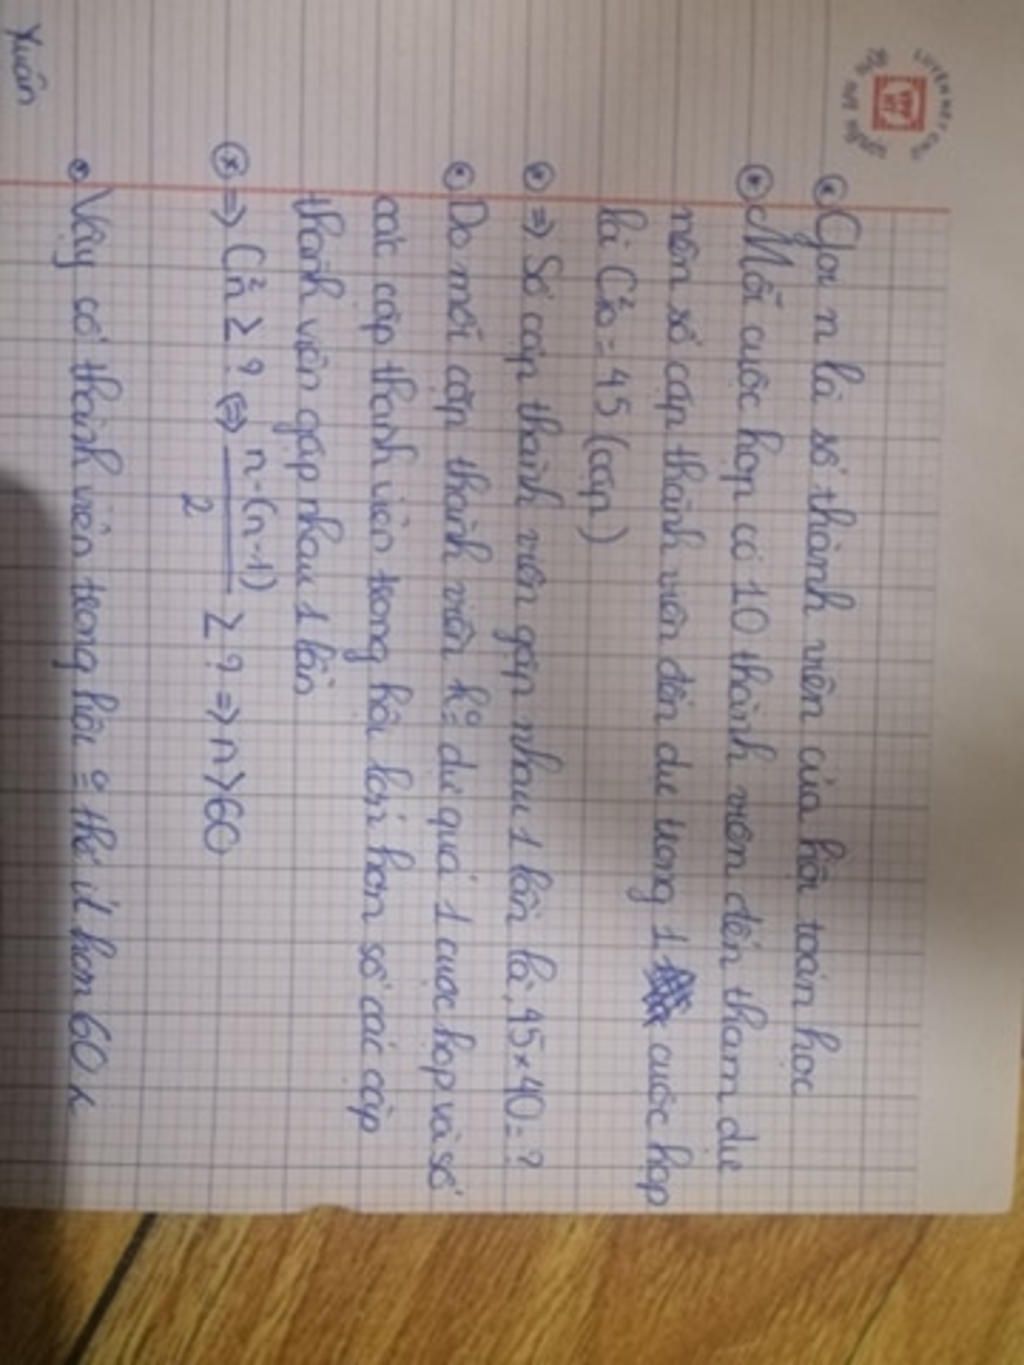 Gọi n là số thành viên của hội toán học
Mỗi cuộc họp có 10 thành viên đến tham dự
nên số cặp thành viên đến dự trong 1 cuộc họp
là C²₁₀ = 45 (cặp)
=> Số cặp thành viên gặp nhau 1 lần là, 45 × 40 = ?
Do mỗi cặp thành viên k° dự quá 1 cuộc họp và số
các cặp thành viên trong hội lớn hơn số các cặp
thành viên gặp nhau 1 lần
(*) => C²ₙ ≥ ? <=> n·(n-1)/2 ≥ ? => n > 60
Vậy số thành viên trong hội thể ít hơn 60
Xuân